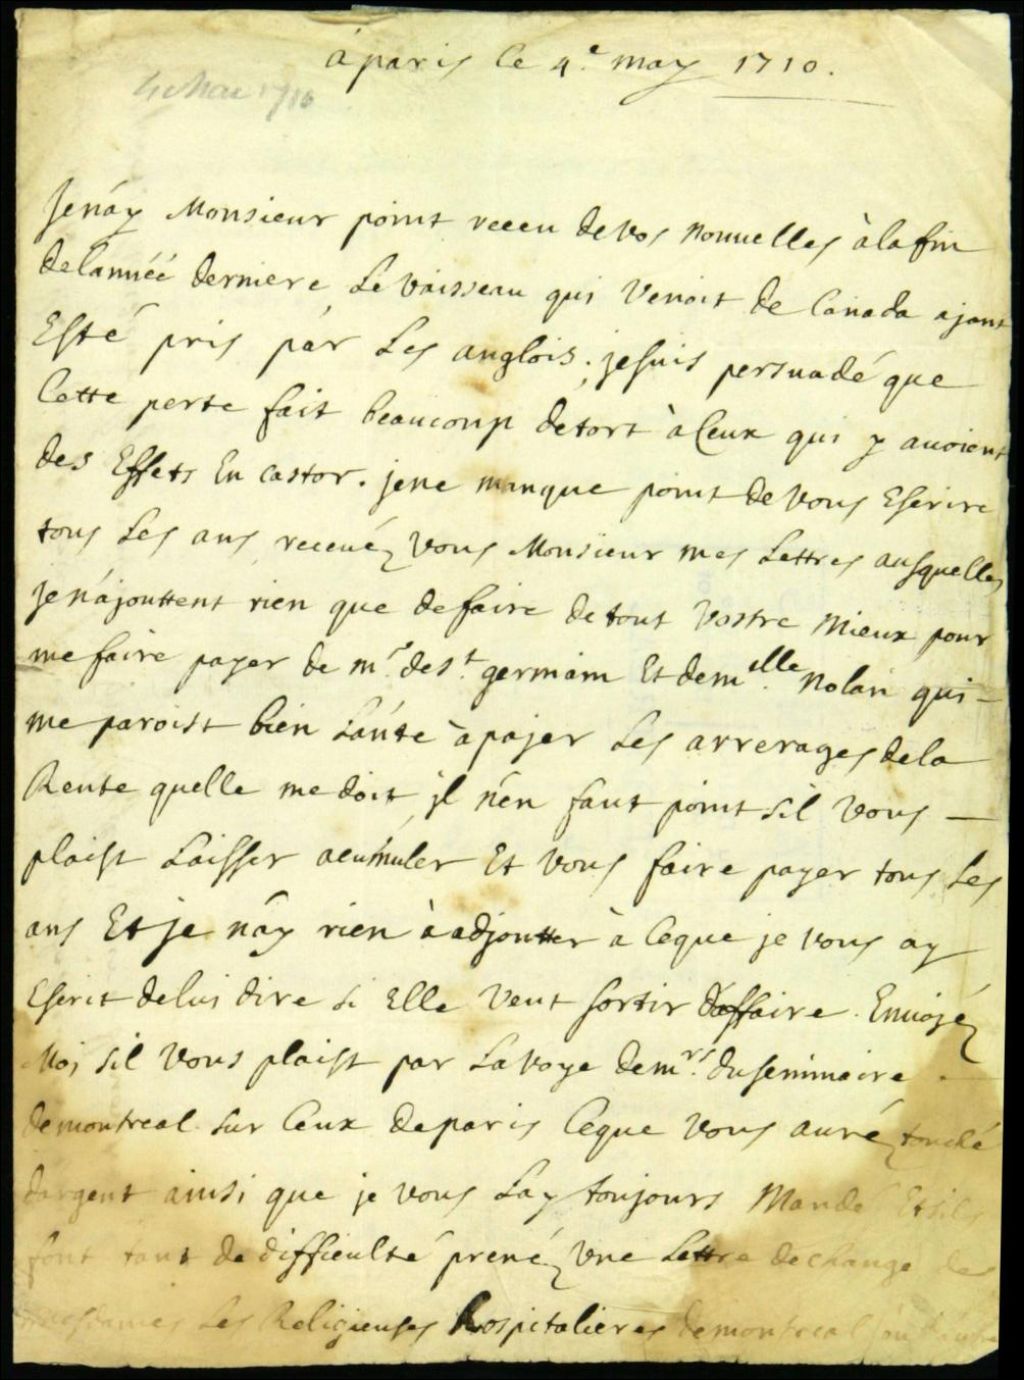 à paris le 4.e may 1710.
4 Mai 1710
Je náy Monsieur point receu de vos nouuelles à la fin
de lannéé derniere Le vaisseau qui venoit de Canada ajant
Esté pris pár Les anglois. je suis persuadé que
Cette perte fait beaucoup de tort à Ceux qui y auoient
des Effets En castor. je ne manque point de vous Escrire
tous Les ans receué, vous Monsieur mes Lettres ausquelles
je nájouttent rien que de faire de tout Vostre Mieux pour
me faire payer de mr. de st. germain Et de melle. Nolan qui
me paroist bien Lánte à pajer Les arrerages de la
Rente quelle me doit jl nén faut point sil vous
plaist Laisser acumuler Et vous faire payer tous Les
ans Et je náy rien à adjoutter à Ceque je vous ay
Escrit de lui dire si Elle veut sortir dáffaire. Enuojéz
Moi sil vous plaist par La voye de mrs. du seminaire
de montreal sur Ceux de paris Ceque vous auréz touché
dargent ainsi que je vous Lay toujours Mandé Et sils
font tant de difficulté prenéz vne Lettre de change de
Mesdames Les Religieuses hospitalieres de montreal